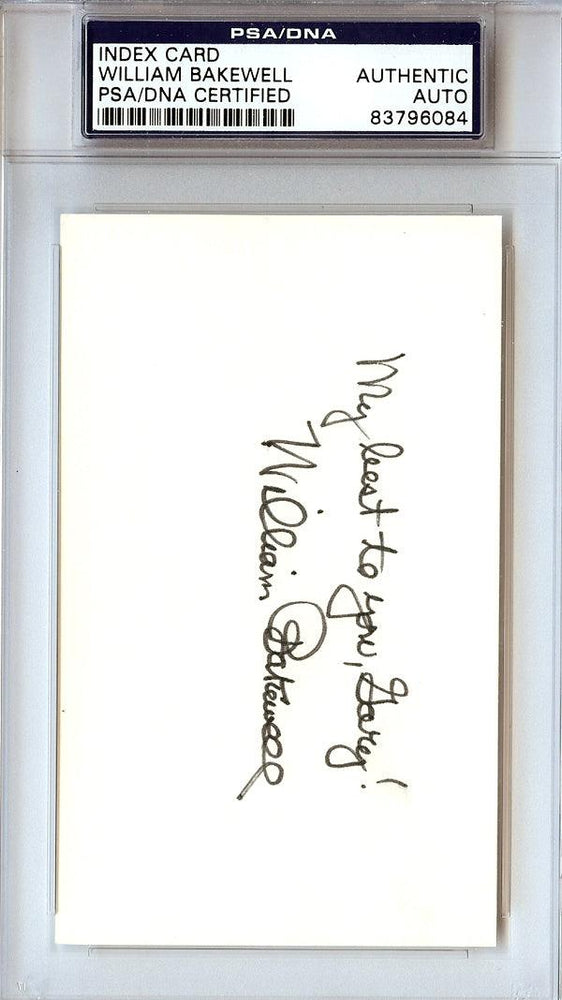 PSA/DNA
INDEX CARD
WILLIAM BAKEWELL
PSA/DNA CERTIFIED
AUTHENTIC
AUTO
83796084
My best to you, Gary!
William Bakewell